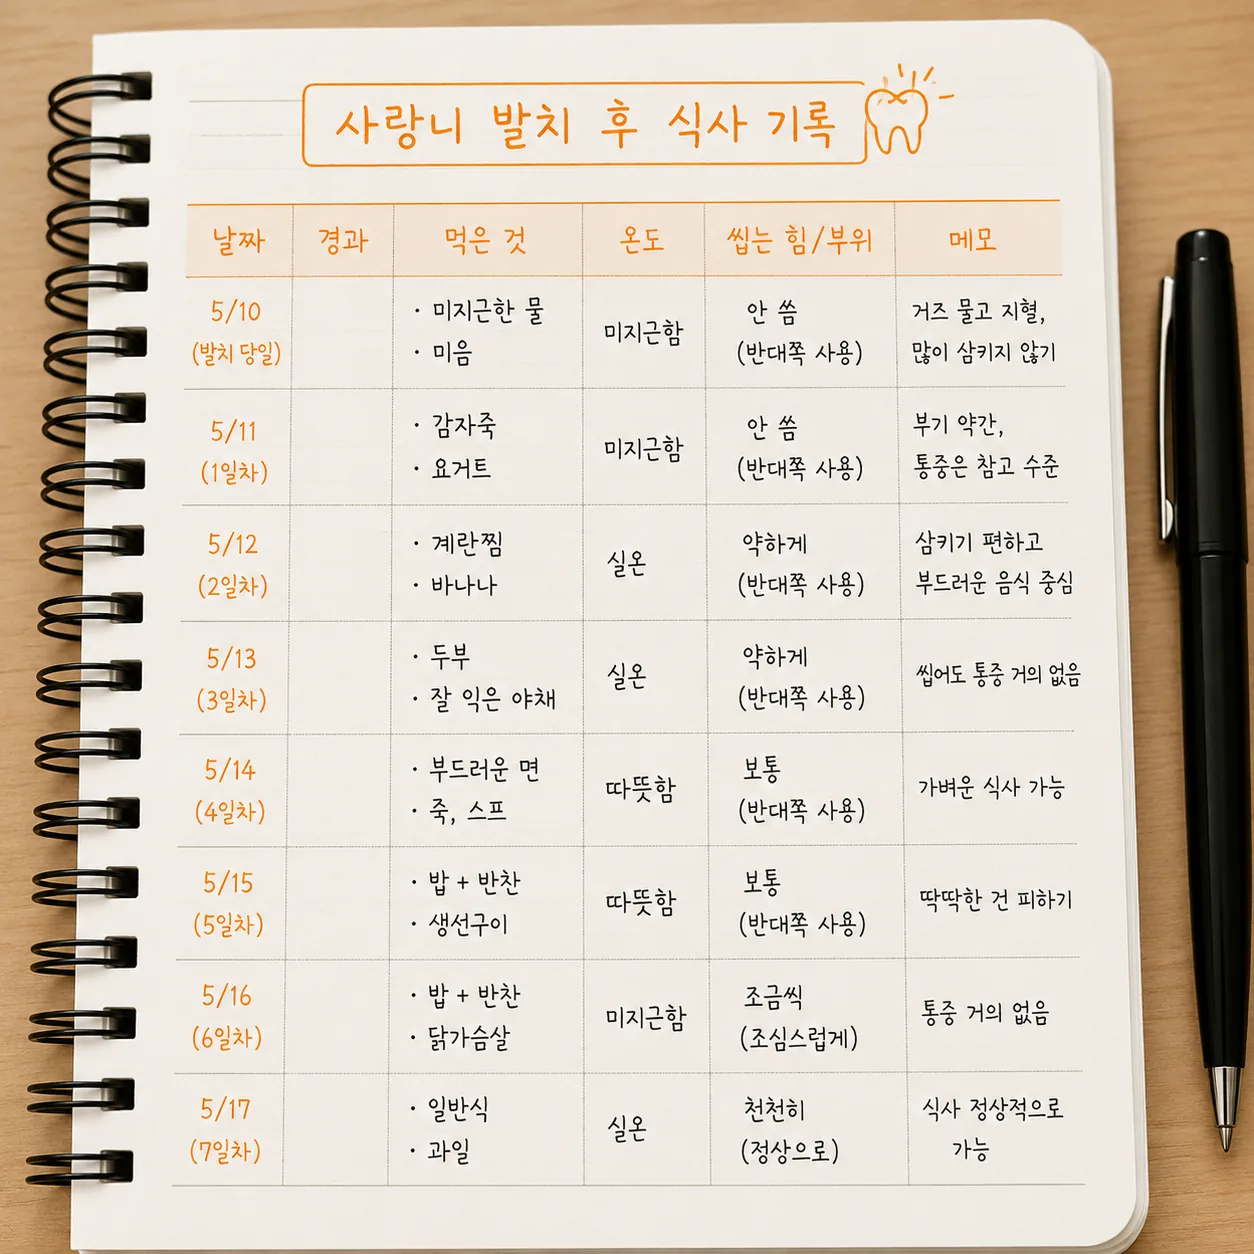 사랑니 발치 후 식사 기록
날짜 경과 먹은 것 온도 씹는 힘/부위 메모
5/10
(발치 당일)
· 미지근한 물
· 미음
미지근함
안 씀
(반대쪽 사용)
거즈 물고 지혈,
많이 삼키지 않기
5/11
(1일차)
· 감자죽
· 요거트
미지근함
안 씀
(반대쪽 사용)
부기 약간,
통중은 참고 수준
5/12
(2일차)
· 계란찜
· 바나나
실온
약하게
(반대쪽 사용)
삼키기 편하고
부드러운 음식 중심
5/13
(3일차)
· 두부
· 잘 익은 야채
실온
약하게
(반대쪽 사용)
씹어도 통중 거의 없음
5/14
(4일차)
· 부드러운 면
· 죽, 스프
따뜻함
보통
(반대쪽 사용)
가벼운 식사 가능
5/15
(5일차)
· 밥 + 반찬
· 생선구이
따뜻함
보통
(반대쪽 사용)
딱딱한 건 피하기
5/16
(6일차)
· 밥 + 반찬
· 닭가슴살
미지근함
조금씩
(조심스럽게)
통중 거의 없음
5/17
(7일차)
· 일반식
· 과일
실온
천천히
(정상으로)
식사 정상적으로
가능